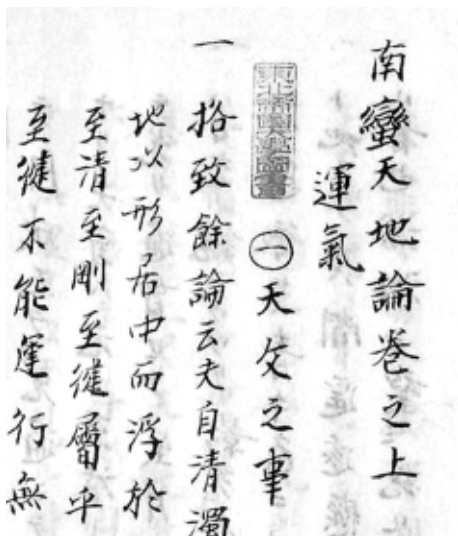 南蠻天地論巻之上
運氣
東北帝國大學圖書
㊀天文之事
一 挌致餘論云夫自清濁
地以形居中而浮於
至清至剛至徤屬乎
至徤不能運行無